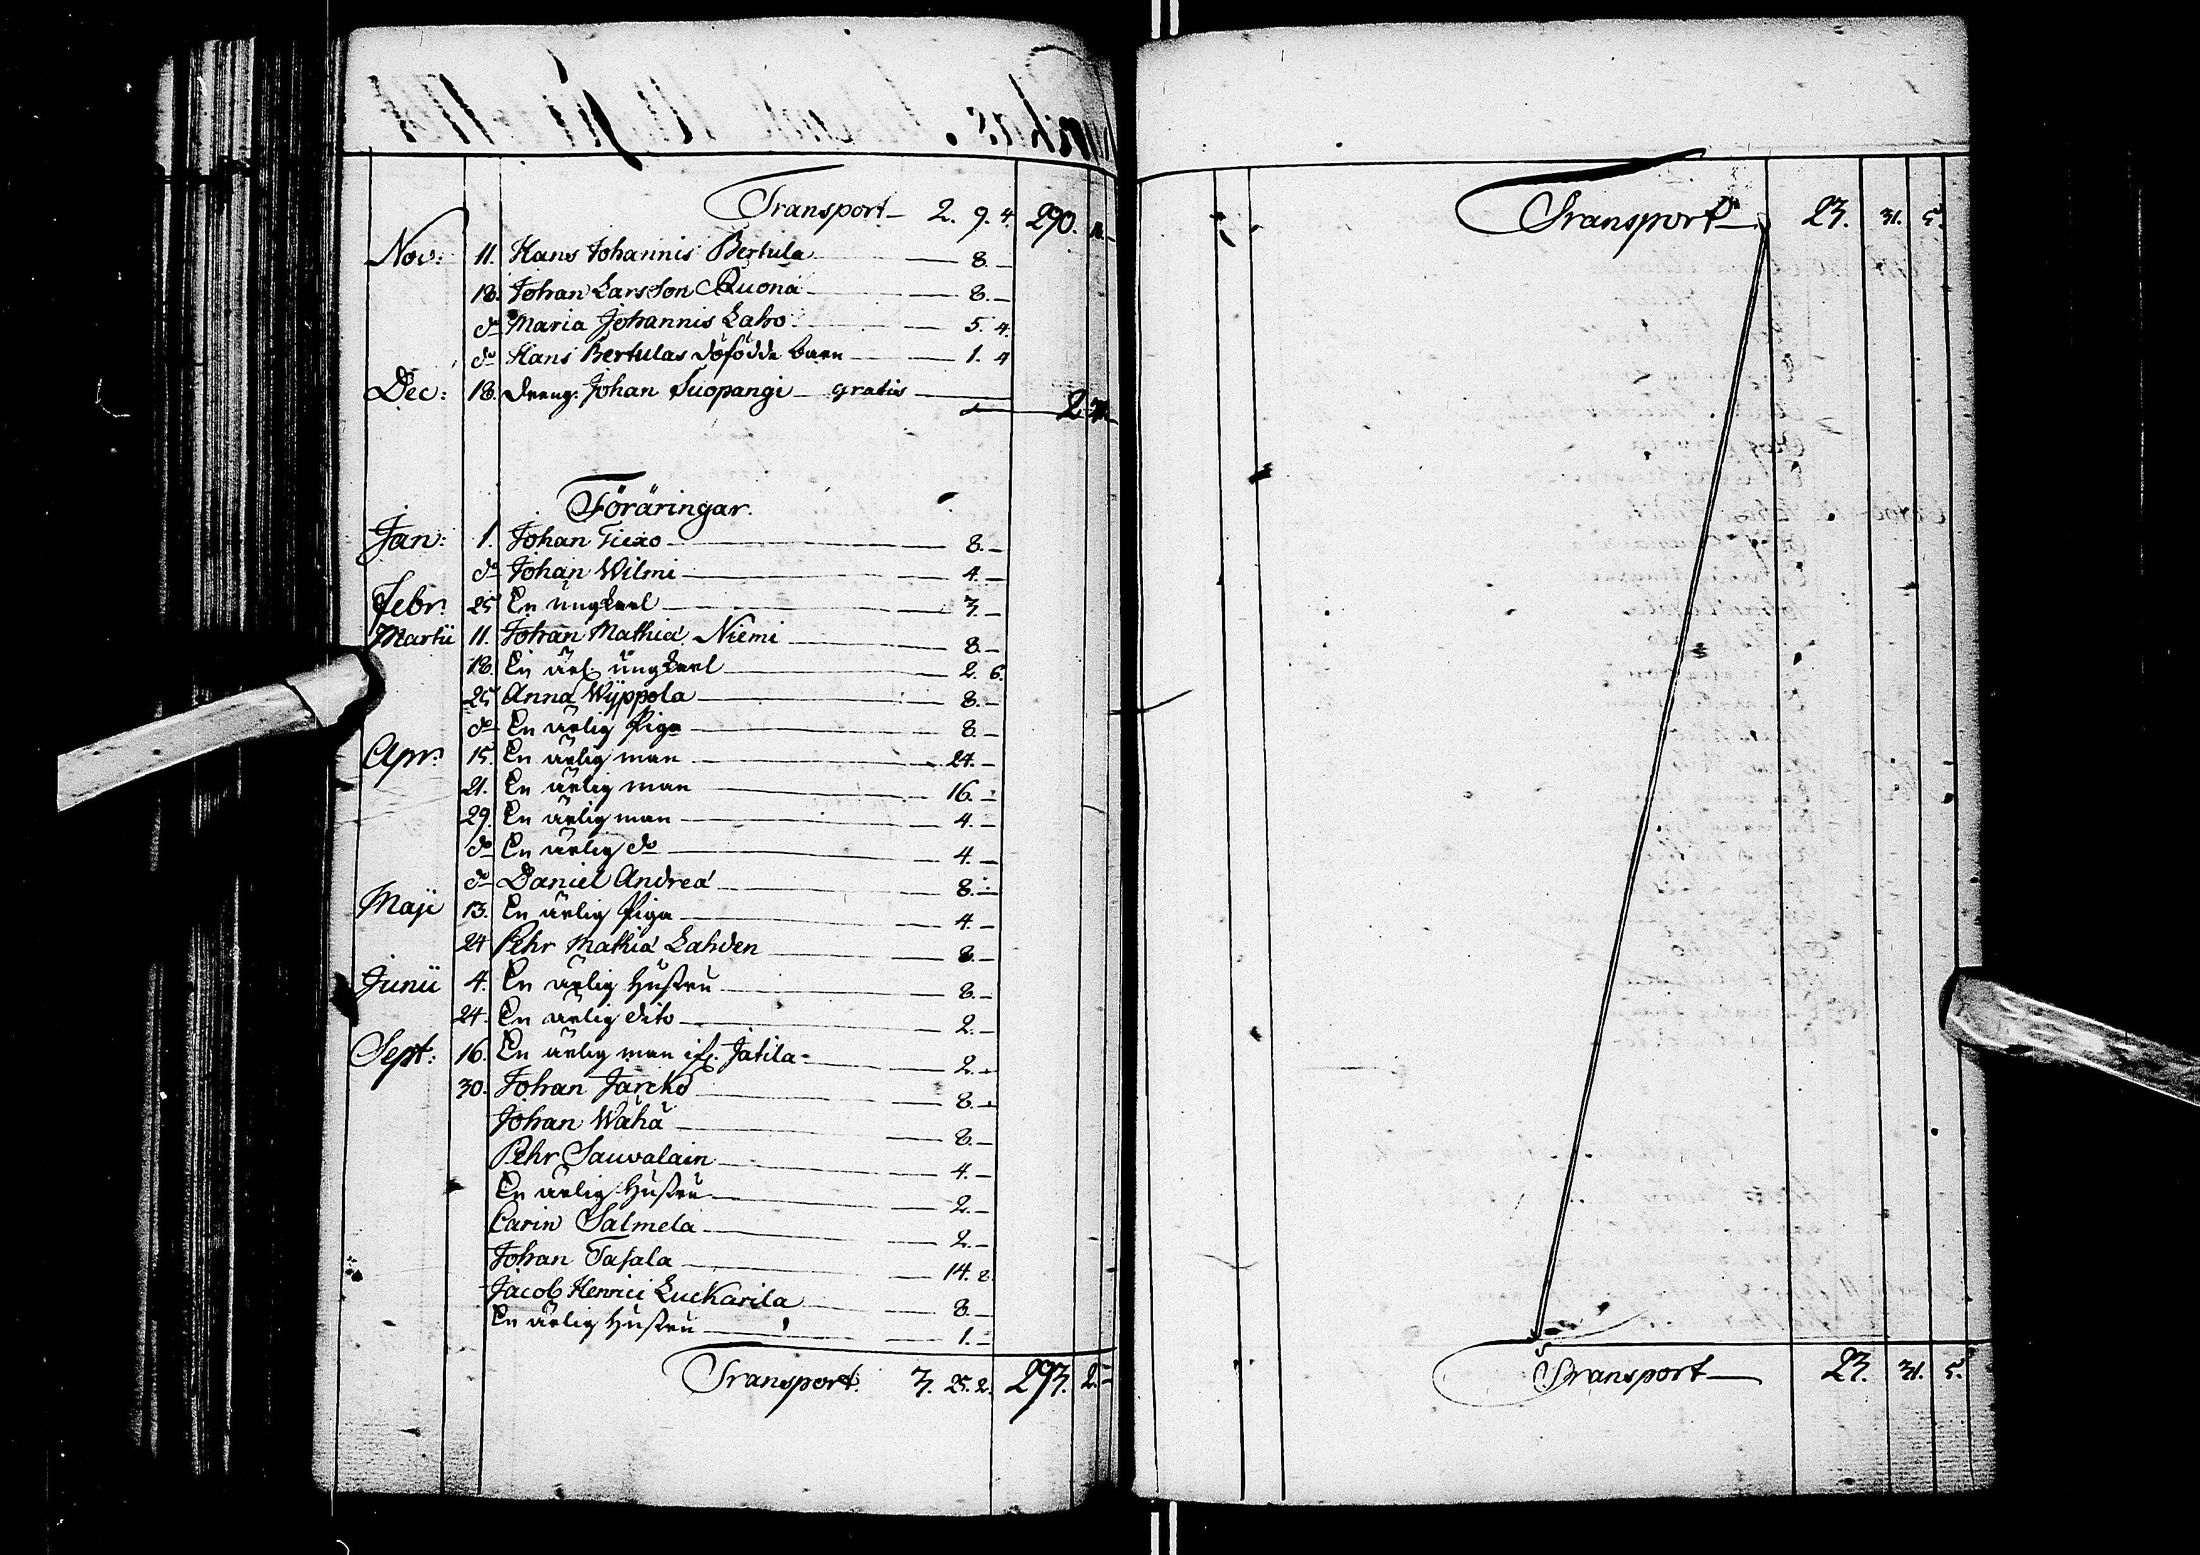 Transport 2. 9. 4. 290.
Nov: 11. Hans Johannis Bertula 8. –
18. Johan Larsson Ruona 8. –
do Maria Johannis Laho 5. 4.
do Hans Bertulas döfödde barn 1. 4
Dec: 18. dreng. Johan Suopangi gratis
2.
Föräringar.
Jan: 1. Johan 8. –
do Johan Wilmi 4. –
Febr: 25 En ungkarl 3. –
Martii 11. Johan Mathiæ Niemi 8. –
18. En ärl. ungkarl 2. 6.
25 Anna Wÿppola 8. –
do En ärlig Piga 8. –
Apr: 15. En ärlig man 24. –
21. En ärlig man 16. –
29. En ärlig man 4. –
do En ärlig do 4. –
do Daniel Andreæ 8. –
Maji 13. En ärlig Piga 4. –
24 Pehr Mathiæ Lahden 8. –
Junii 4. En ärlig Hustru 8. –
24. En ärlig dito 2. –
Sept: 16. En ärlig man Jatila 2. –
30. Johan Jarcko 8. –
Johan Wähä 8. –
Pehr Sauvalain 4. –
En ärlig Hustru 2. –
Carin Salmela 2. –
Johan Tasala 14. 2.
Jacob Henrici Luckarila 8. –
En ärlig Hustru 1. –
Transport. 3. 25. 2. 293. 2. –
Transport 23. 31. 5.
Transport 23. 31. 5.